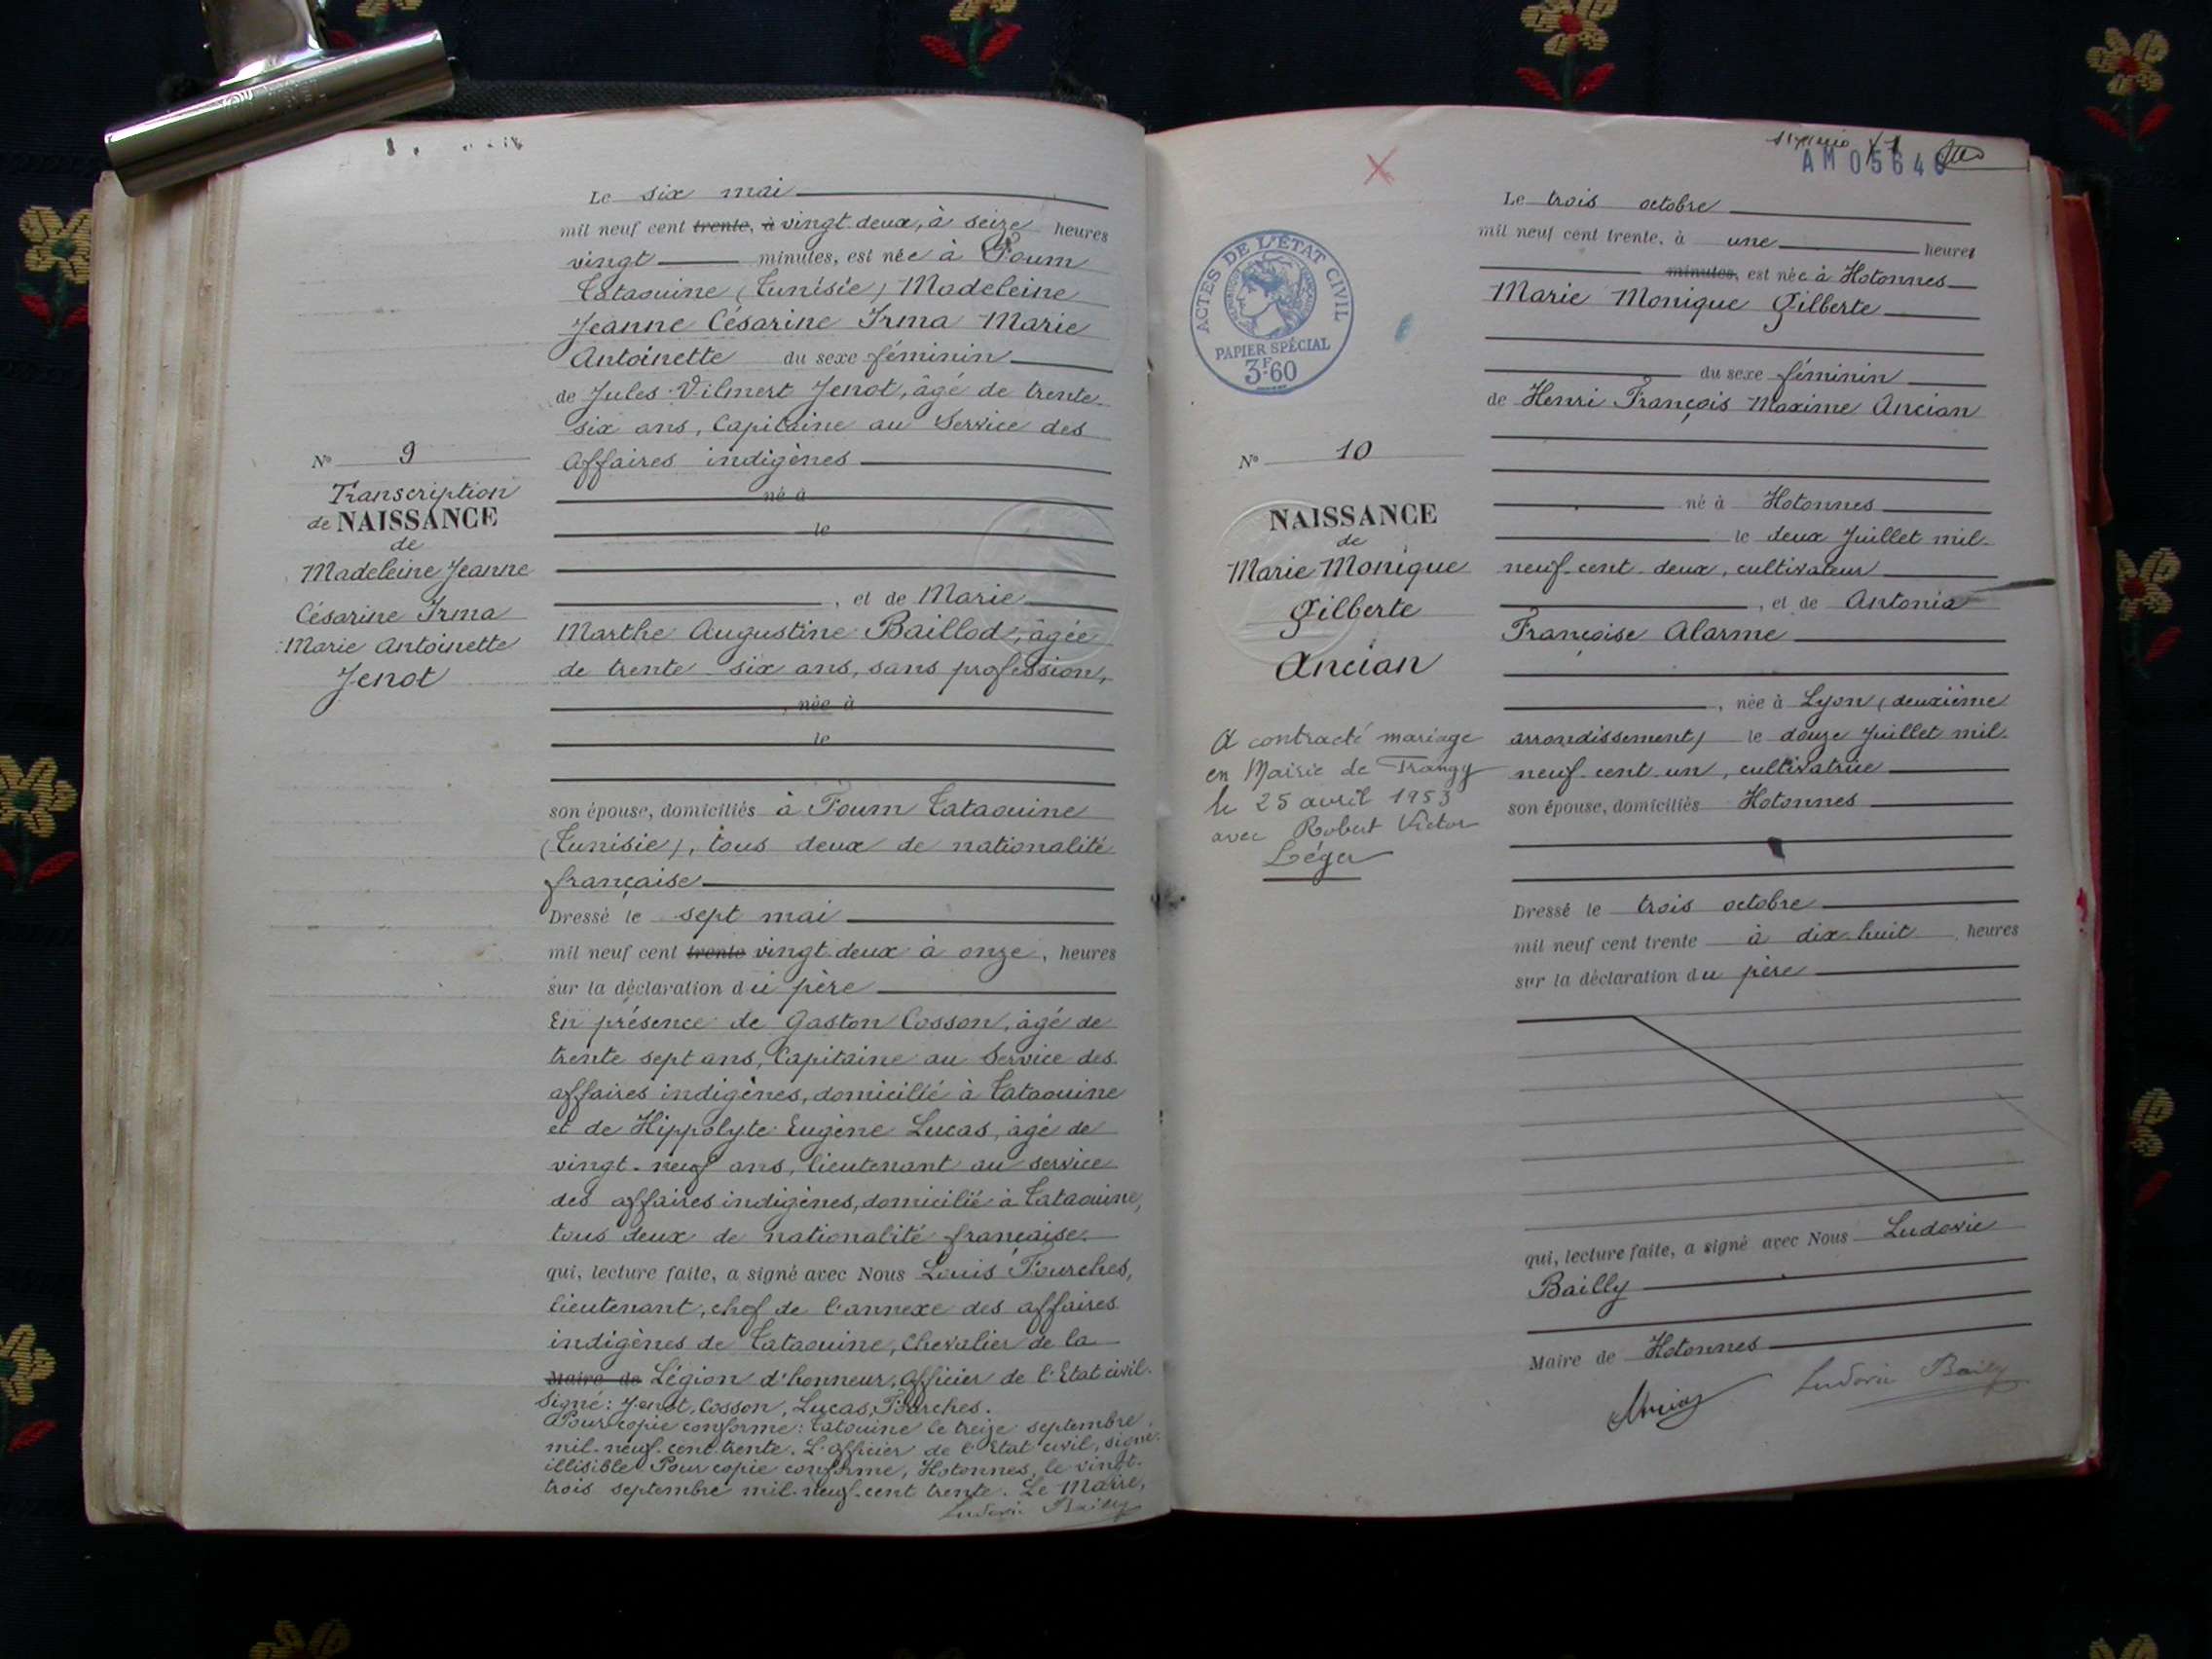 Le six mai
mil neuf cent trente, à vingt deux, à seize heures
vingt minutes, est née à Foum
Tataouine (Tunisie) Madeleine
Jeanne Césarine Irma Marie
Antoinette du sexe féminin
de Jules Vilmert Jenot, âgé de trente
six ans, Capitaine au Service des
Affaires indigènes
né à
le
, et de Marie
Marthe Augustine Baillod, âgée
de trente six ans, sans profession,
, née à
le
son épouse, domiciliés à Foum Tataouine
(Tunisie), tous deux de nationalité
française
Dressé le sept mai
mil neuf cent trente vingt deux à onze, heures
sur la déclaration du père
En présence de Gaston Cosson, âgé de
trente sept ans, Capitaine au Service des
affaires indigènes, domicilié à Tataouine
et de Hippolyte Eugène Lucas, âgé de
vingt-neuf ans, lieutenant au service
des affaires indigènes, domicilié à Tataouine,
tous deux de nationalité française.
qui, lecture faite, a signé avec Nous Louis Fourches,
lieutenant, chef de l'annexe des affaires
indigènes de Tataouine, Chevalier de la
Maire de Légion d'honneur, Officier de l'Etat civil.
Signé: Jenot, Cosson, Lucas, Fourches.
Pour copie conforme: Tatouine le treize septembre
mil-neuf-cent-trente. L'officier de l'Etat civil, signé:
illisible Pour copie conforme, Hotonnes, le vingt-
trois septembre mil-neuf-cent trente. Le Maire,
Ludovic Bailly
N° 9
Transcription
de NAISSANCE
de
Madeleine Jeanne
Césarine Irma
Marie Antoinette
Jenot
AM 0564
Le trois octobre
mil neuf cent trente, à une heures
minutes, est née à Hotonnes
Marie Monique Gilberte
du sexe féminin
de Henri François Maxime Ancian
né à Hotonnes
le deux Juillet mil-
neuf-cent-deux, cultivateur
, et de Antonia
Françoise Alarme
, née à Lyon (deuxième
arrondissement) le douze Juillet mil-
neuf-cent-un, cultivatrice
son épouse, domiciliés Hotonnes
Dressé le trois octobre
mil neuf cent trente à dix-huit heures
sur la déclaration du père
qui, lecture faite, a signé avec Nous Ludovic
Bailly
Maire de Hotonnes
Ancian Ludovic Bailly
ACTES DE L'ÉTAT CIVIL
RÉPUBLIQUE FRANÇAISE
PAPIER SPÉCIAL
3F.60
N° 10
NAISSANCE
de
Marie Monique
Gilberte
Ancian
A contracté mariage
en Mairie de Frangy
le 25 avril 1953
avec Robert Victor
Léger